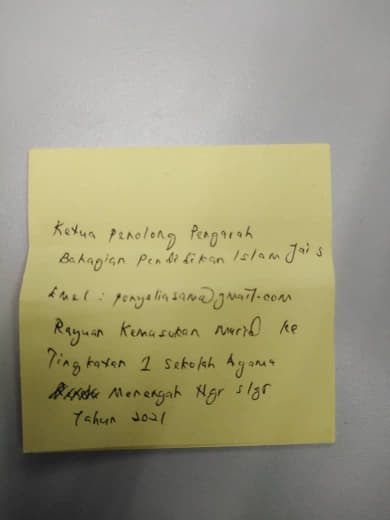 Ketua Penolong Pengarah
Bahagian Pendidikan Islam Jais
Emel : penyeliasama@gmail.com
Rayuan Kemasukan Murid ke
Tingkatan 1 Sekolah Agama
Menengah Ngr Slgr
Tahun 2021